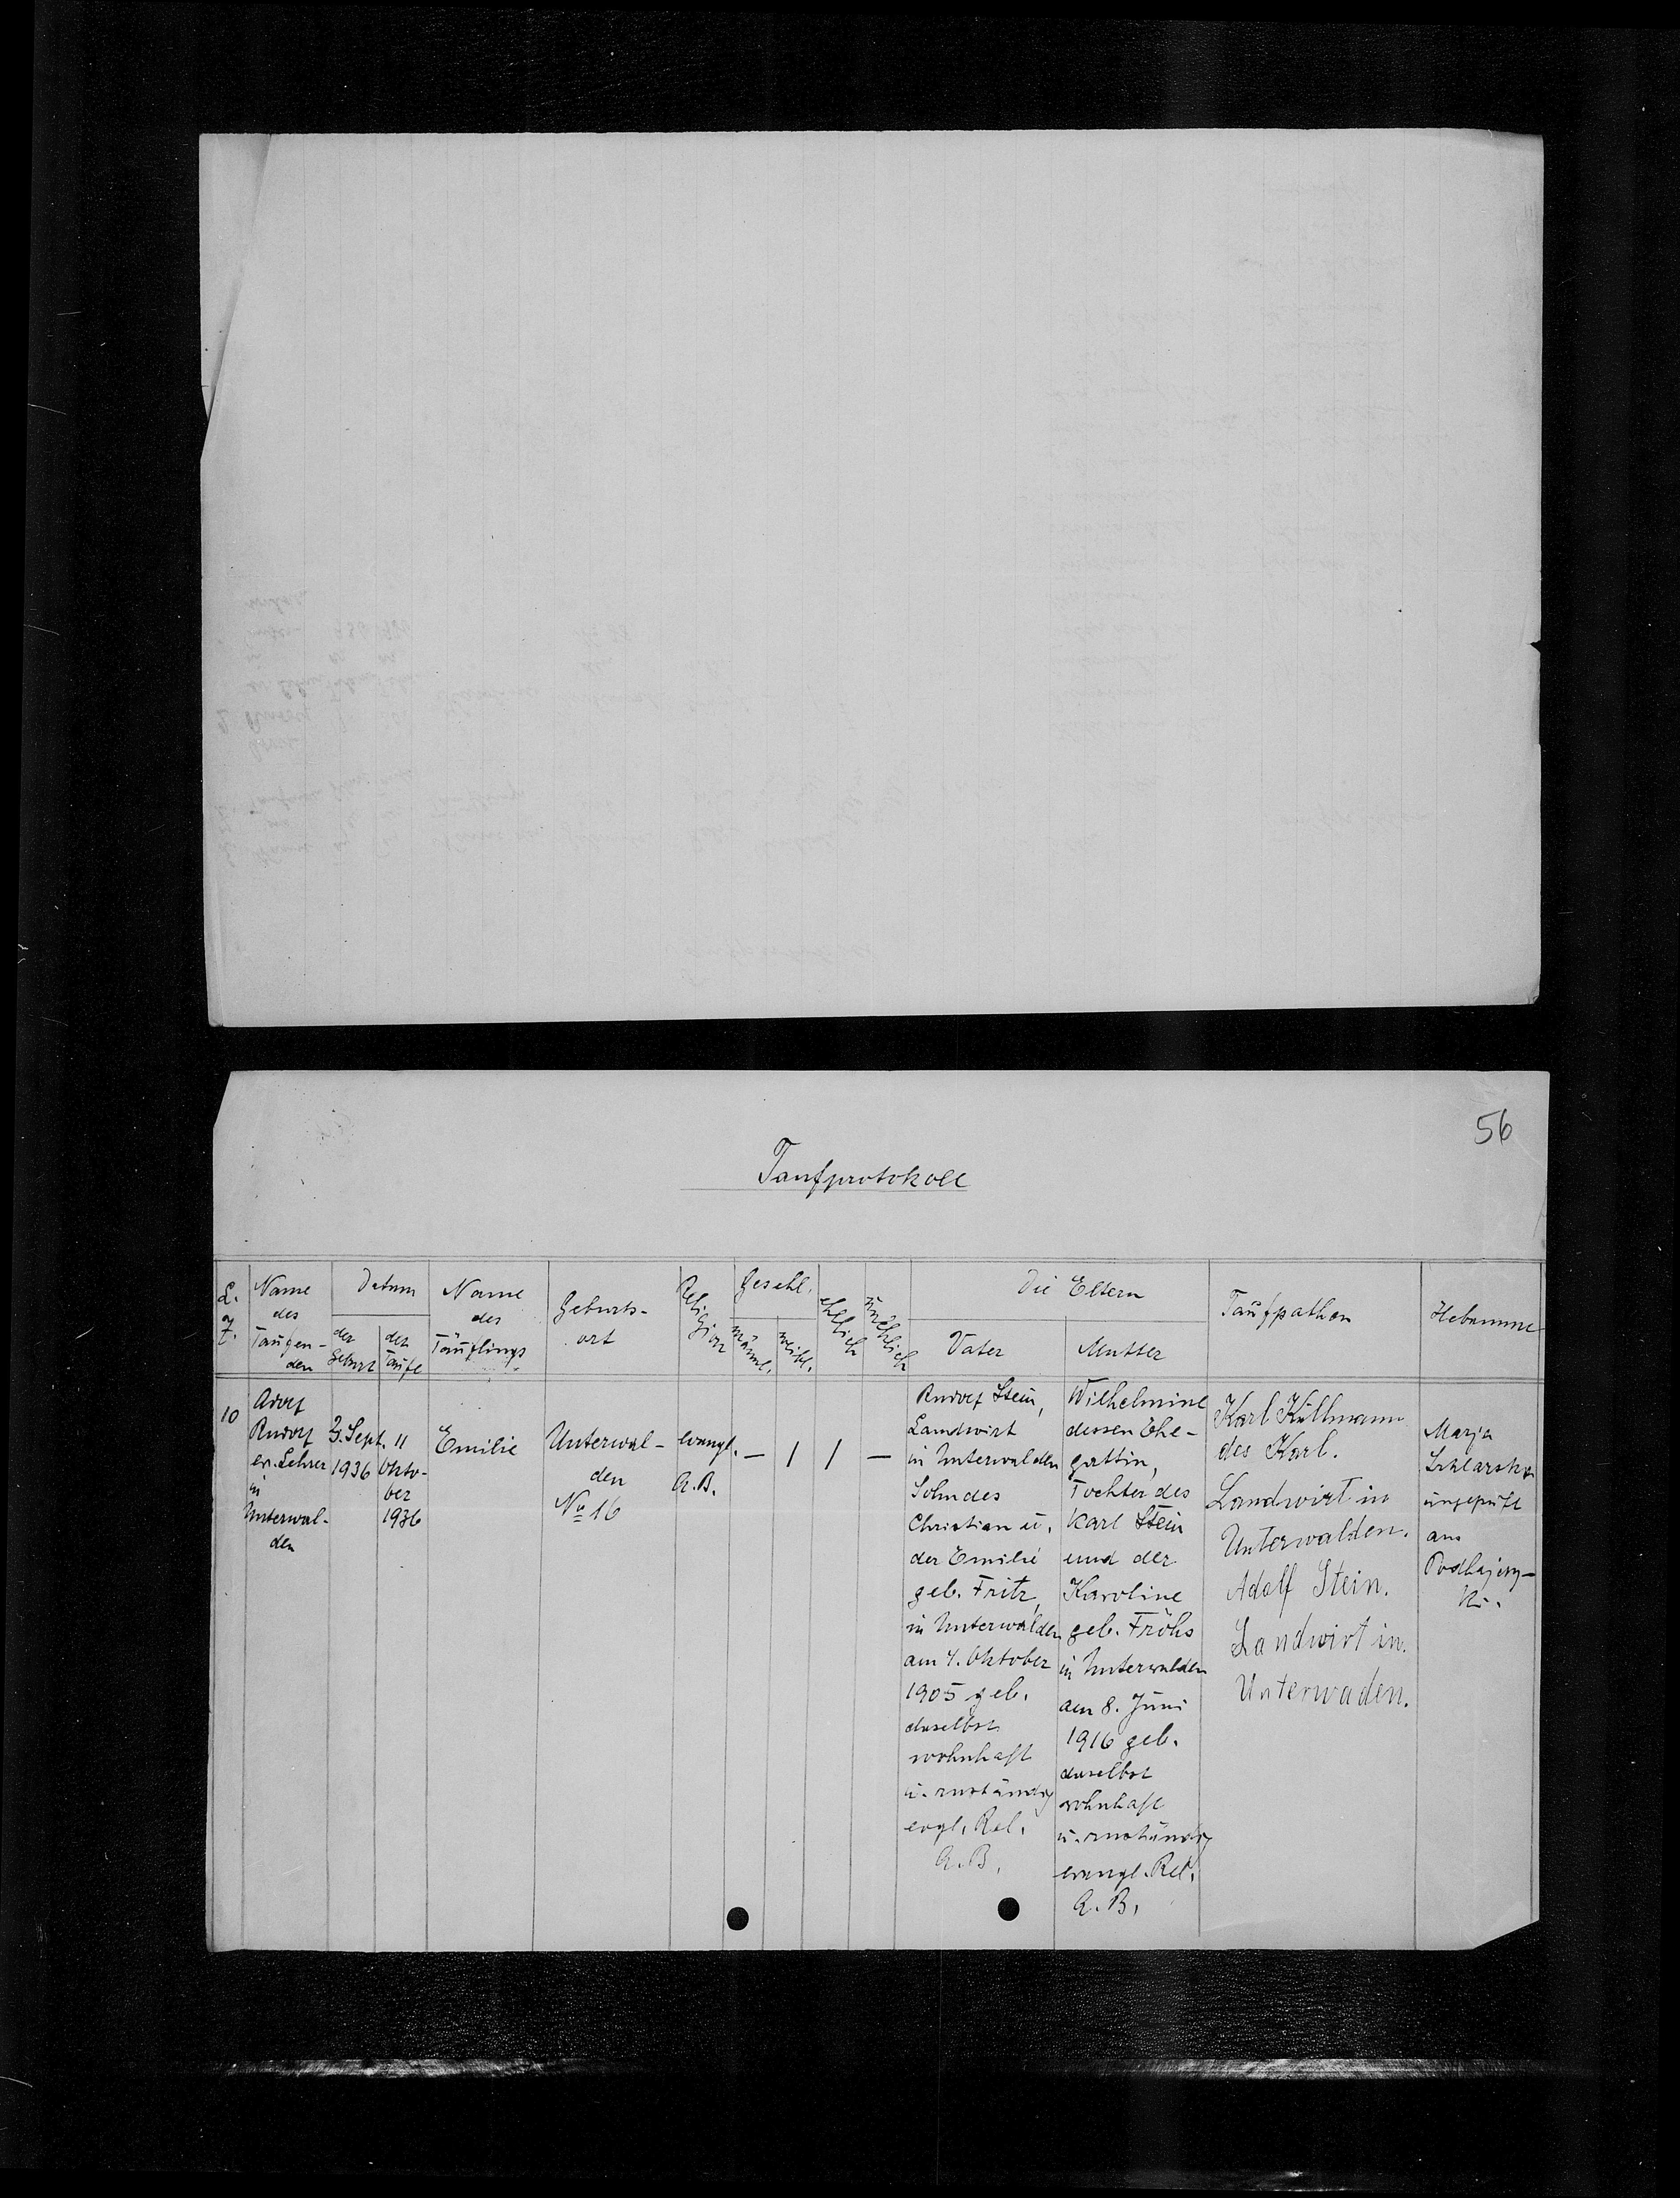 56
Taufprotokoll
L. Z.
Name des Taufen- den
Datum
der Geburt
der Taufe
Name des Täuflings
Geburts- ort
Religion
Geschl.
männl.
weibl.
ehelich
unehlich
Die Eltern
Vater
Mutter
Taufpathen
Hebamme
10
Adolf
Rudolf
ev. Lehrer
in
Unterwal-
den
3. Sept.
1936
11
Okto-
ber
1936
Emilie
Unterwal-
den
No 16
evangl.
A.B.
—
1
1
—
Rudolf Stein,
Landwirt
in Unterwalden
Sohn des
Christian u.
der Emilie
geb. Fritz,
in Unterwalden
am 4. Oktober
1905 geb.
daselbst
wohnhaft
u. zuständig
evgl. Rel.
A.B.
Wilhelmine
dessen Ehe-
gattin,
Tochter des
Karl Stein
und der
Karoline
geb. Fröhs
in Unterwalden
am 8. Juni
1916 geb.
daselbst
wohnhaft
u. zuständig
evangl. Rel.
A.B.
Karl Küllmann
des Karl.
Landwirt in
Unterwalden.
Adolf Stein.
Landwirt in.
Unterwaden.
Marja
ungeprüft
aus